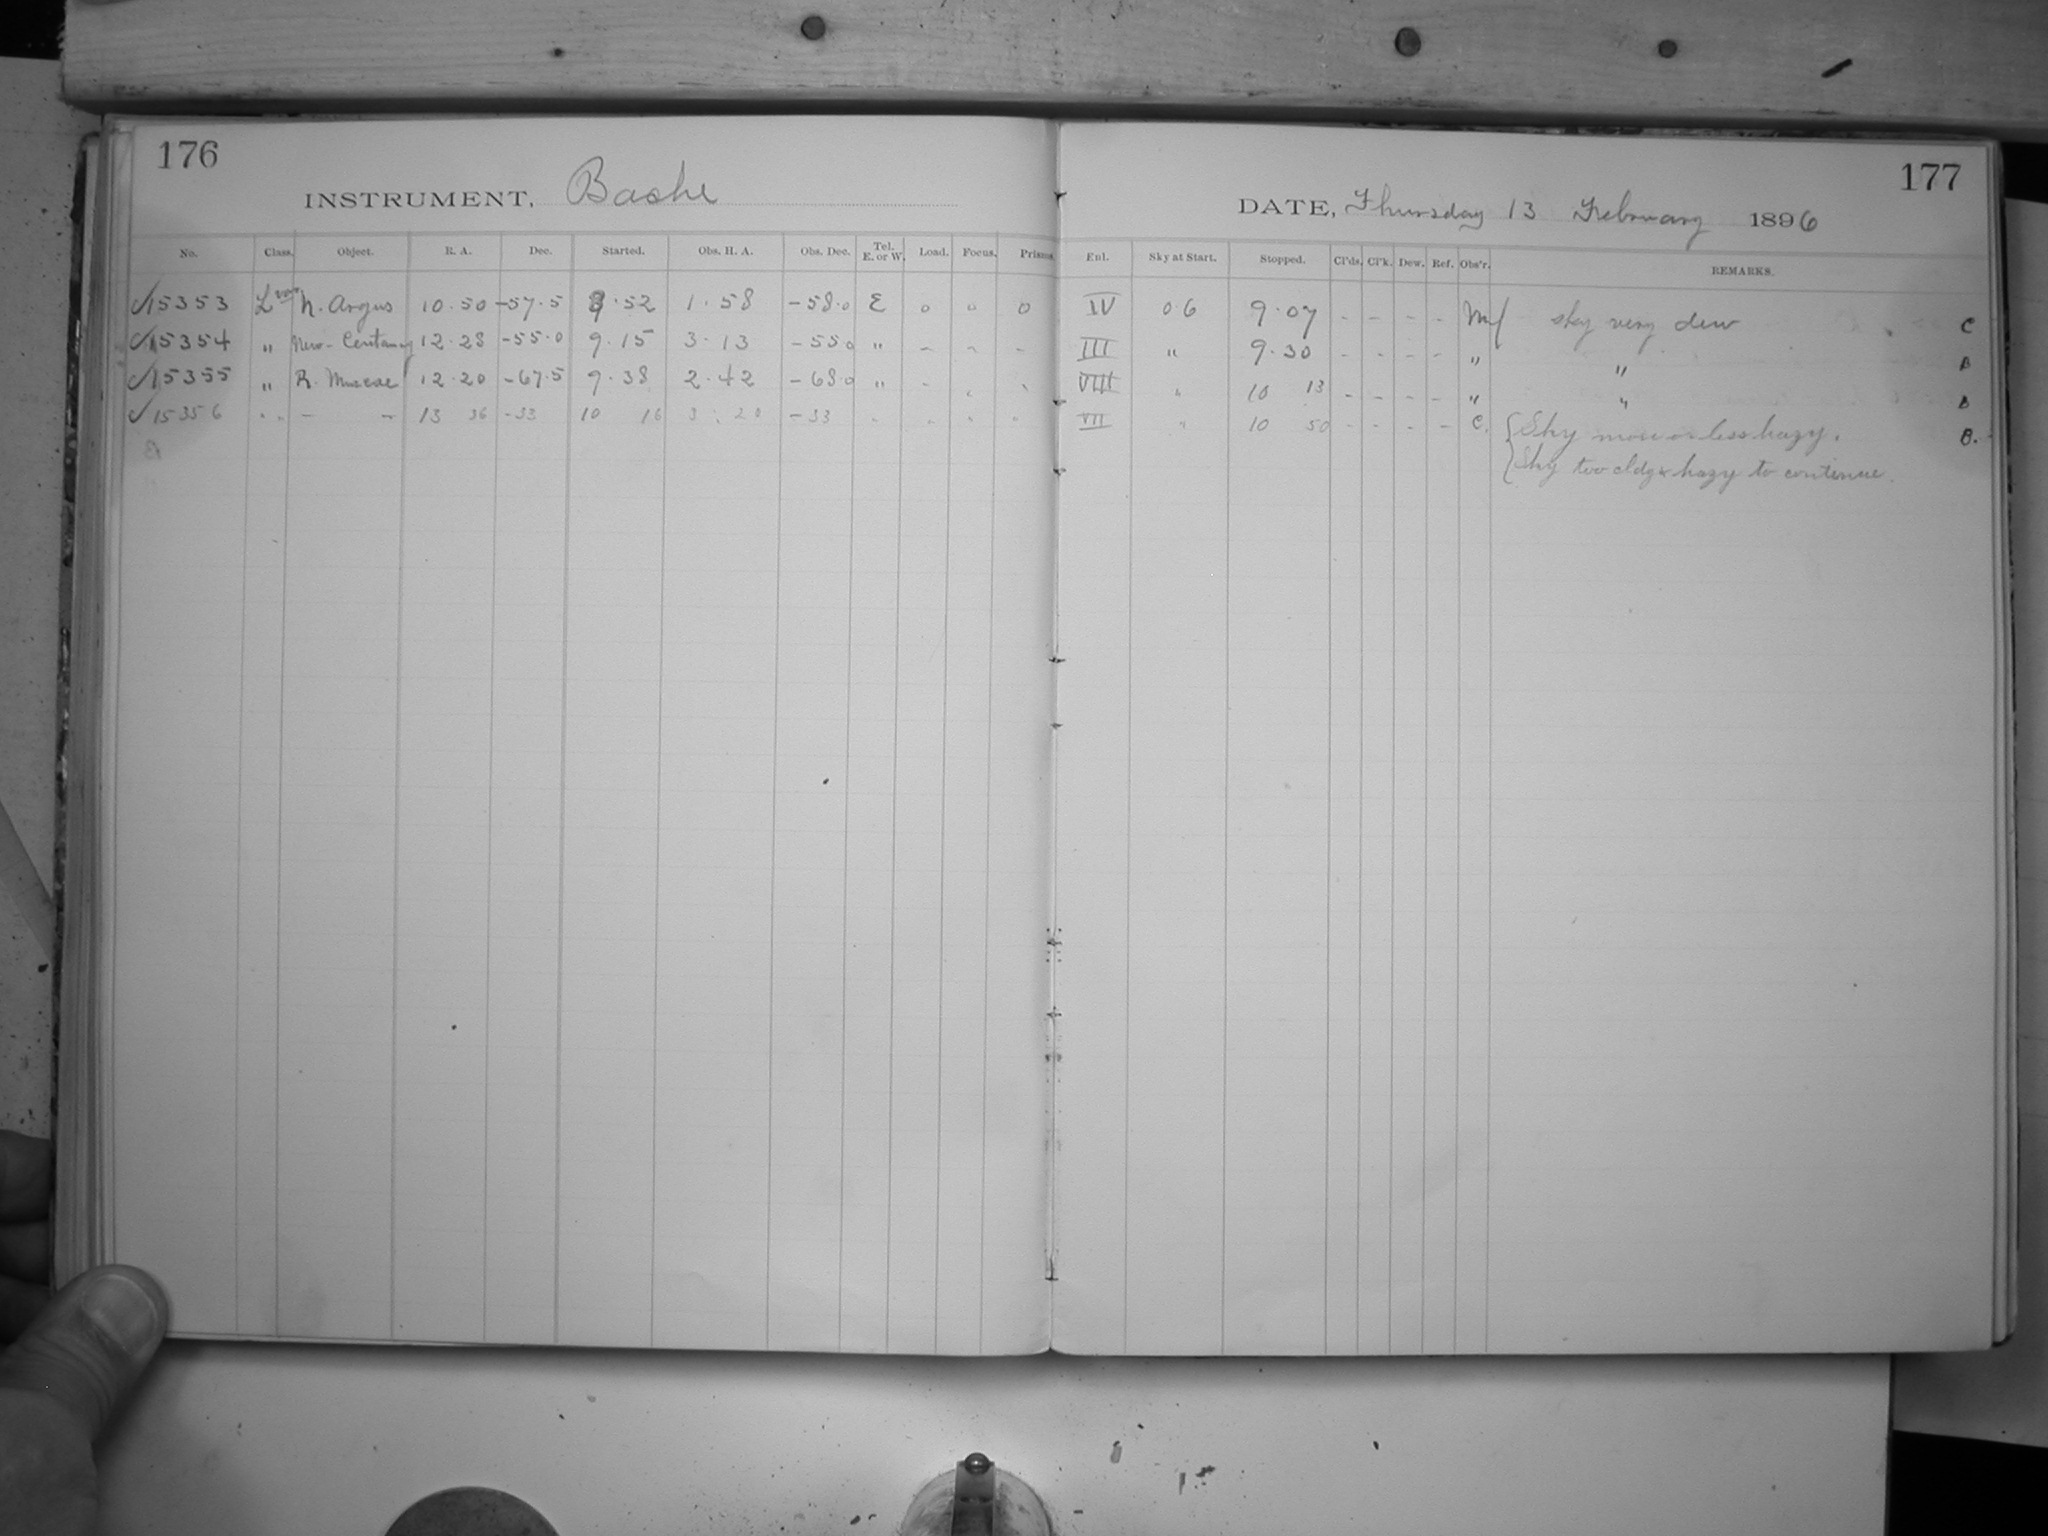 176
INSTRUMENT, Bache
No. Class. Object. R. A. Dec. Started. Obs. H. A. Obs. Dec. Tel. E. or W. Load. Focus. Prisms.
15353 L N. Argus 10.50 -57.5 8.52 1.58 -58.0 E 0 0 0
15354 " Centaury 12.28 -55.0 9.15 3.13 -55.0 " - - -
15355 " R. Muscae 12.20 -67.5 9.38 2.42 -68.0 "
15356 - - 13 36 -33 10 16 3.20 -33
177
DATE, Thursday 13 February 1896
Enl. Sky at Start. Stopped. Cl'ds. Cl'k. Dew. Ref. Obs'r. REMARKS.
IV 06 9.07 - - - - sky very dew C
III " 9.30 - - - - " "
VIII " 10 13 - - - - " "
VII " 10 50 - - - - C. { Sky more or less hazy. B.
{ Sky too cldy & hazy to continue.